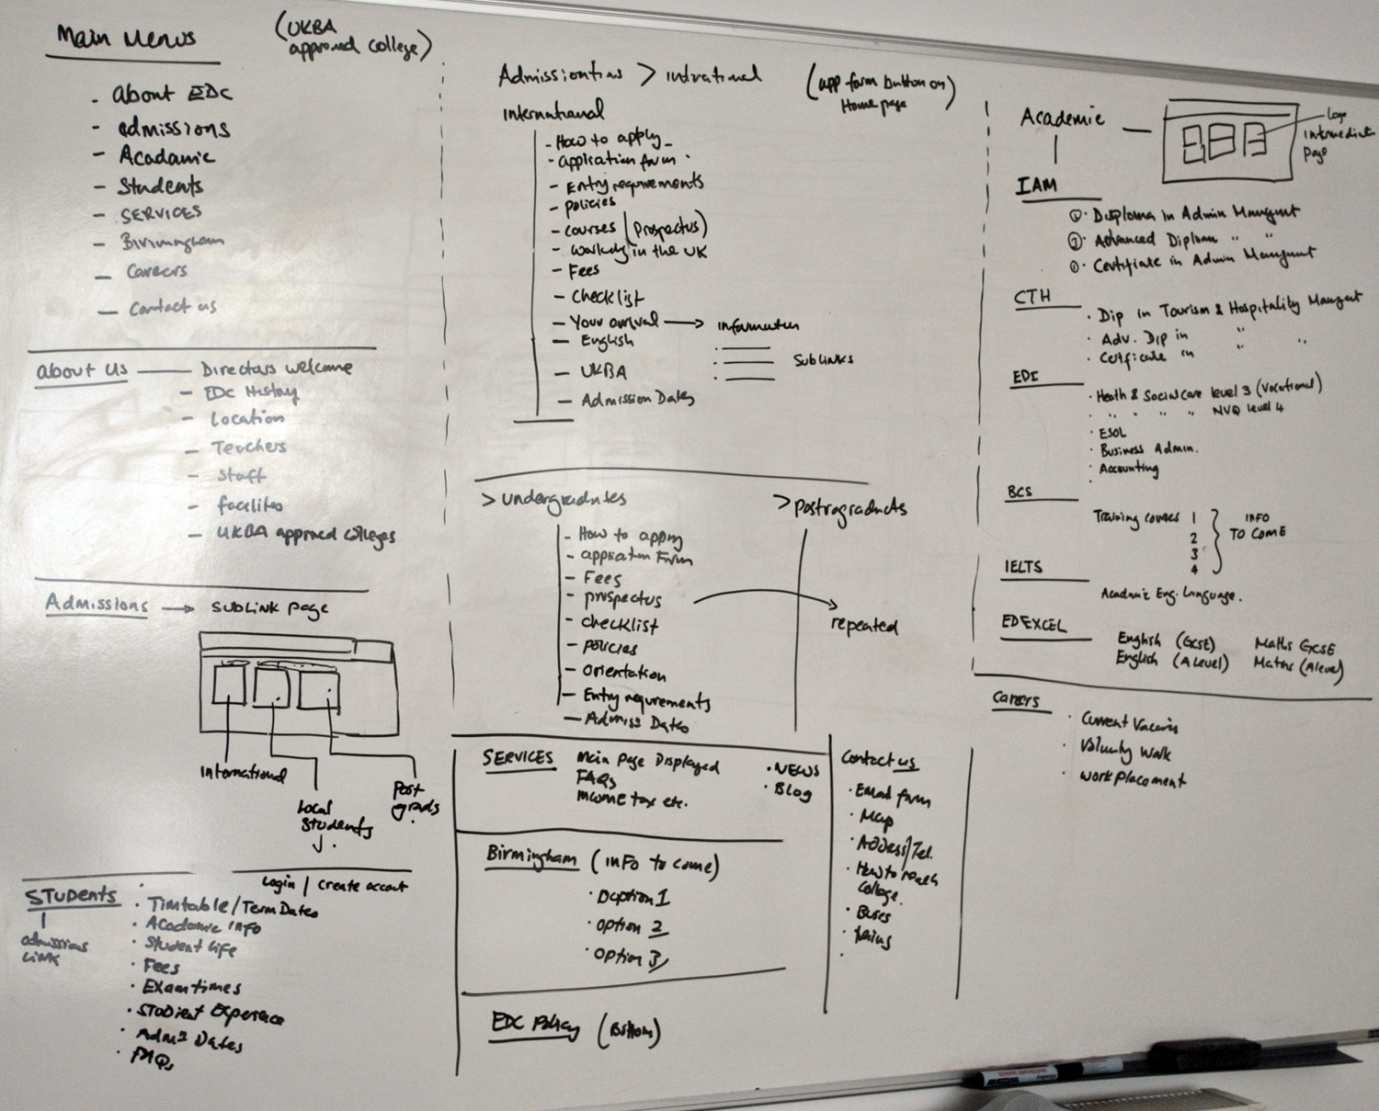 Main Menus
(UKBA
approved college)
- About EDC
- admissions
- Acadamic
- Students
- SERVICES
- Birimingham
- Careers
- Contact us
about us — Directors welcome
- EDC History
- Location
- Teachers
- Staff
- facilites
- UKBA approved colleges
Admissions → SUBLINK page
International
Local
Students
Post
grads
STUDENTS
admissions
LINK
Login / create accout
· Timtable / Term Dates
· Academic info
· Student life
· Fees
· Exam times
· STUDient Experence
· Adm? Dates
· FAQs
Admissiontins > intrational
(app form button on
Home page)
international
- How to apply
- application form
- Entry requirements
- policies
- courses (prospectus)
- working in the UK
- Fees
- Checklist
- Your arrival → information
- English
sub links
- UKBA
- Admission Dates
> undergraduates
- How to apply
- application Form
- Fees
- prospectus
- checklist
- policies
- orientation
- Entry requrements
- Admiss Dates
> postrograducts
repeated
SERVICES
Main page Displayed
FAQs
income tax etc.
· NEWS
· Blog
Birmingham (info to come)
· Doption 1
· option 2
· option 3
EDC Policy (Bottom)
Contact us
· Email form
· Map
· Address/Tel.
· How to reach
College.
· Buses
· trains
Academic
Logo
intermediate
page
IAM
①· Diploma in Admin Mangment
②· Advanced Diplom " "
· Certificate in Admin Mangment
CTH
· Dip in Tourism & Hospitality Mangent
· Adv. Dip in " "
· Certficate in "
EDI
· Heath & Social care level 3 (Vocational)
· " " " " NVQ level 4
· ESOL
· Business Admin.
· Accounting
BCS
Training courses 1
2
3
4
INFO
TO COME
IELTS
Academic Eng. Language.
EDEXCEL
English (GCSE) Maths GCSE
English (A Level) Maths (A level)
Careers
· Current Vacancies
· Voluntry Work
· work placement